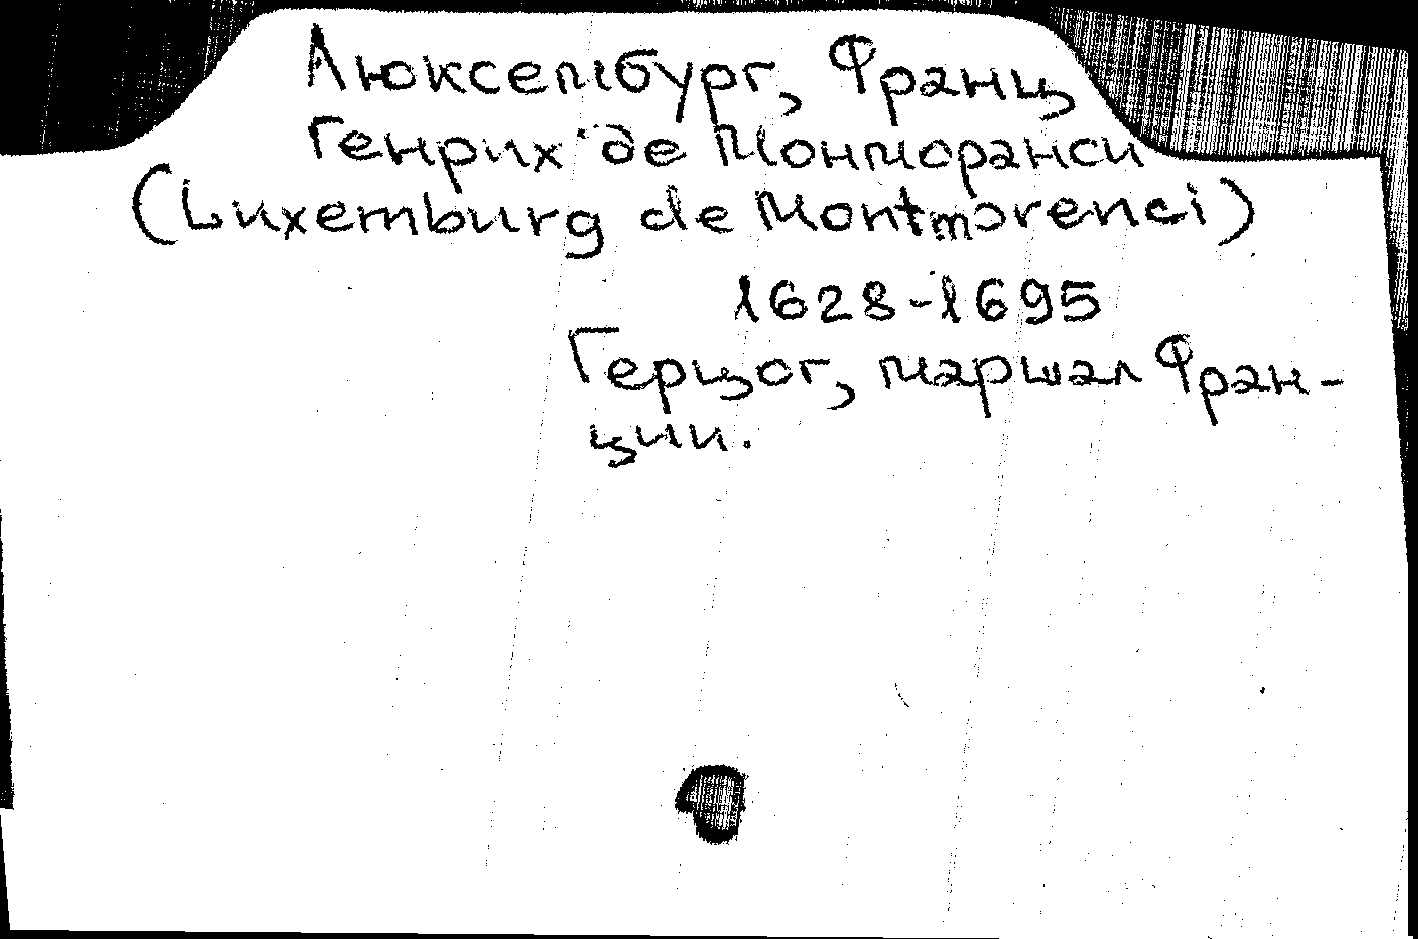 Люксембург, Франц
Генрих де Монморанси
(Luxemburg de Montmorenci)
1628-1695
Герцог, маршал Фран-
ции.